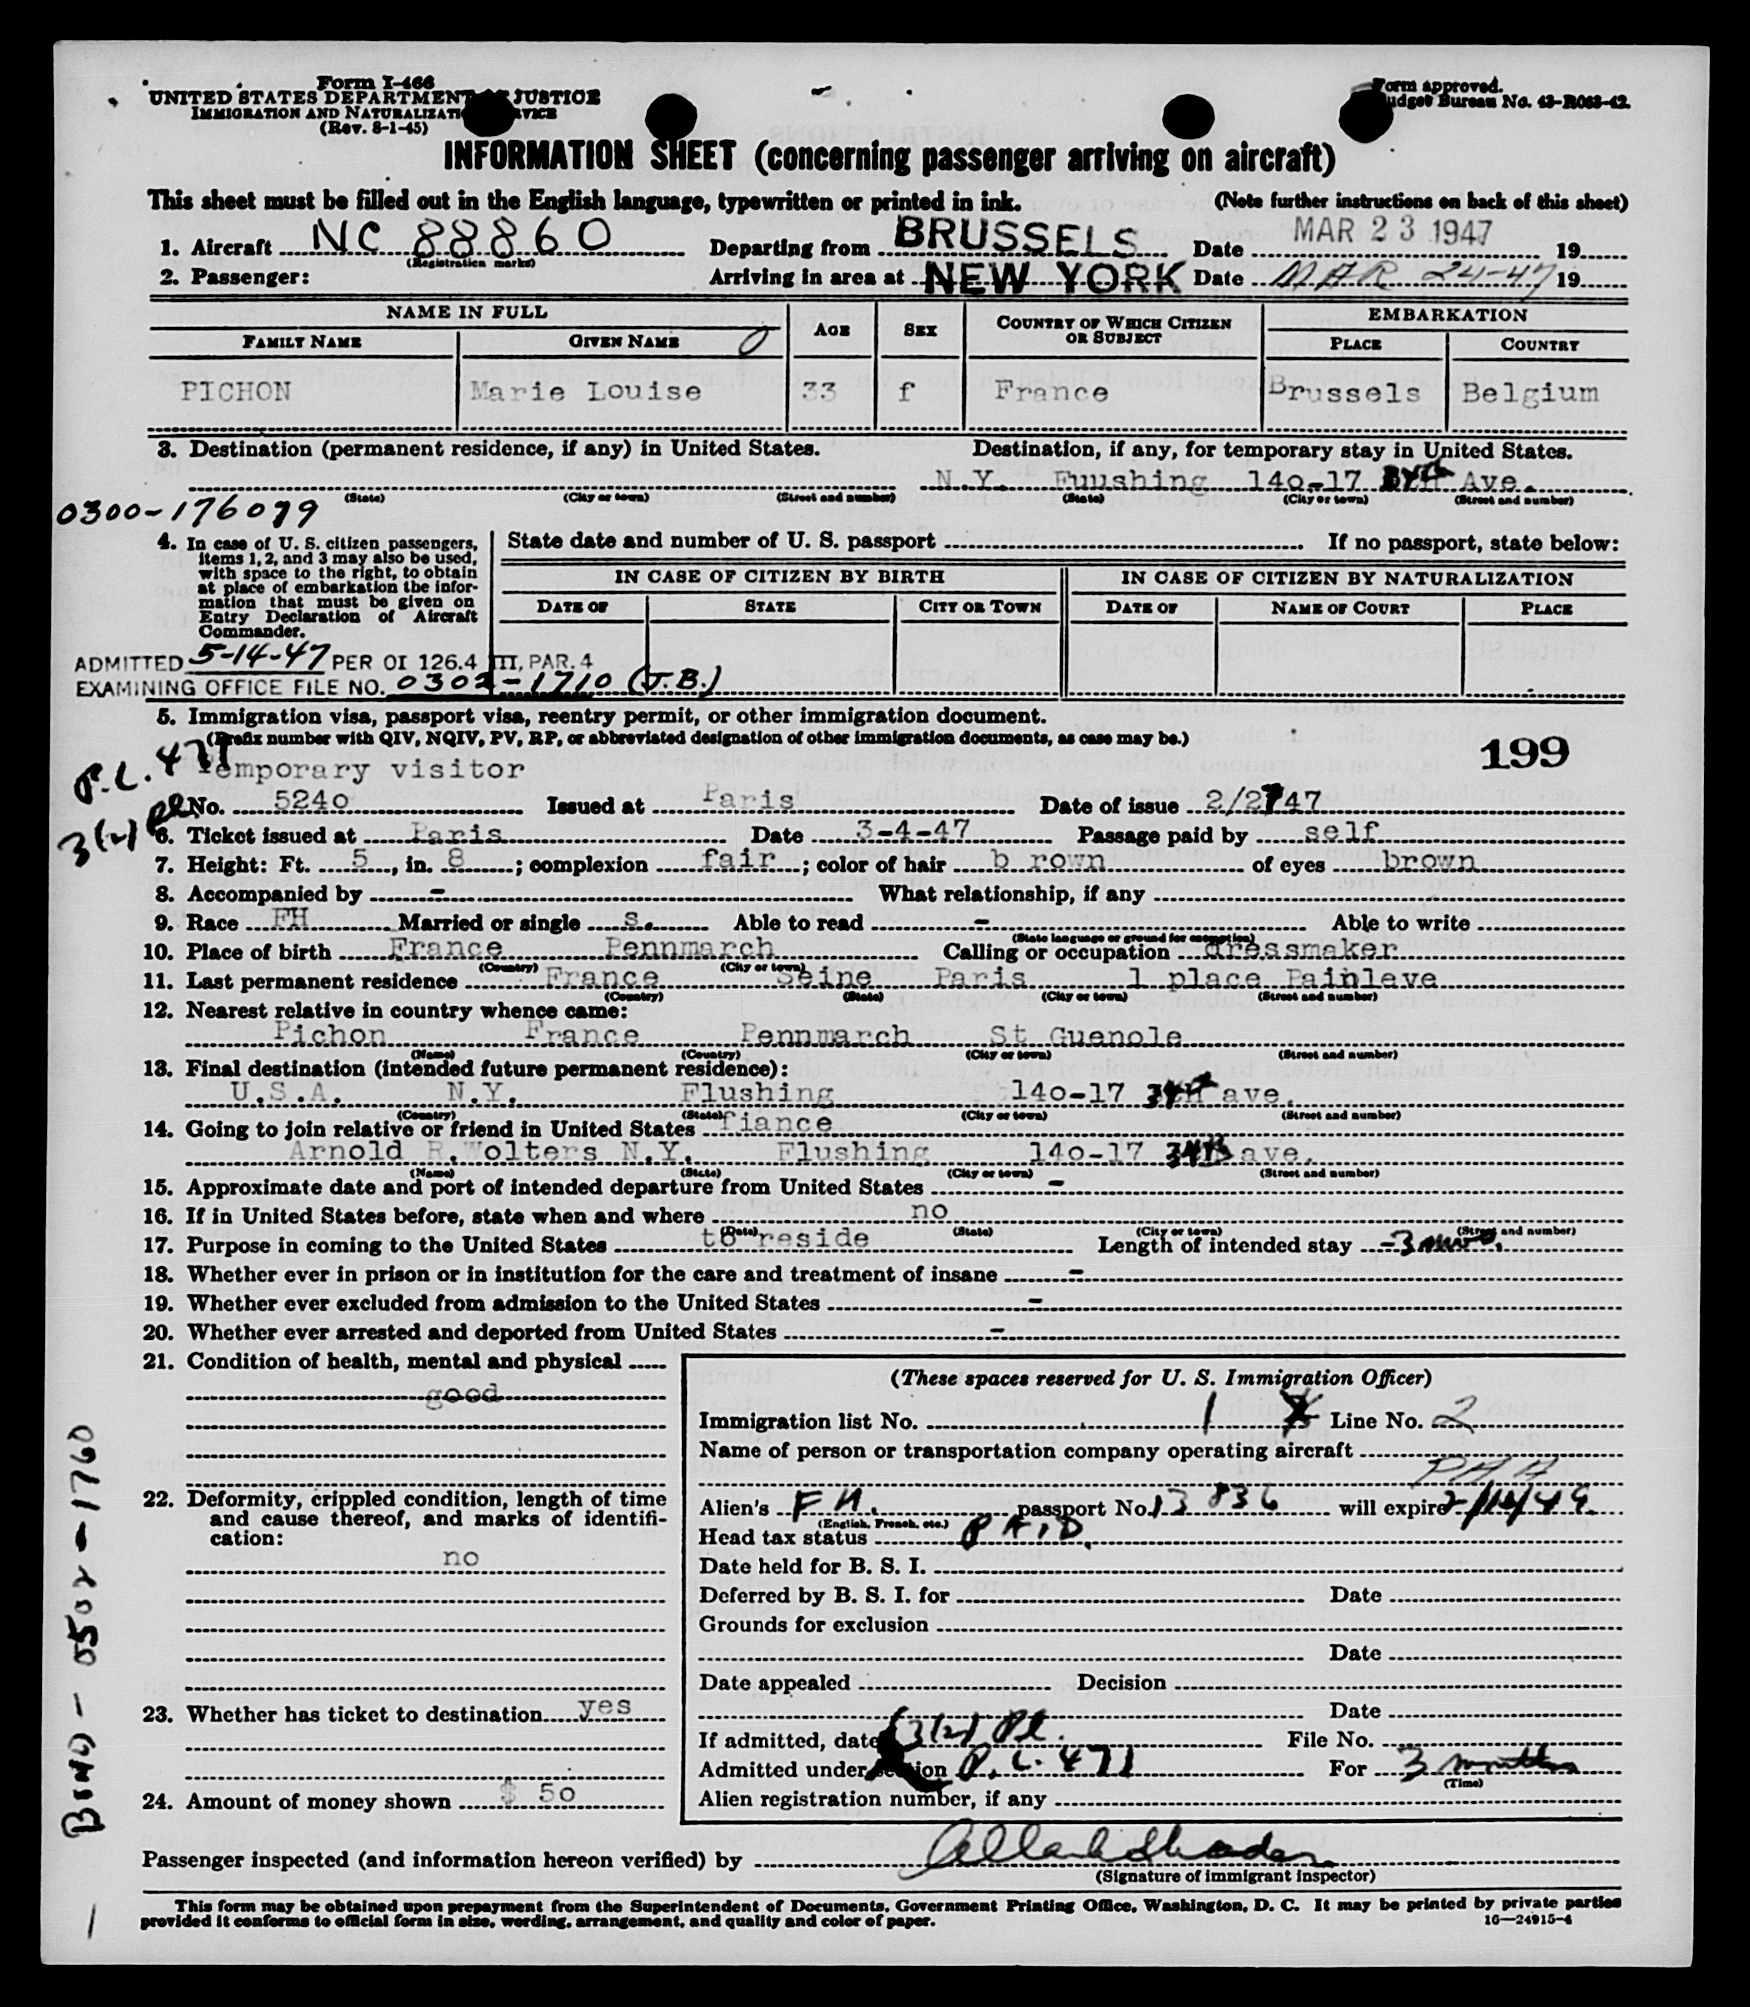 Form I-466
UNITED STATES DEPARTMENT OF JUSTICE
IMMIGRATION AND NATURALIZATION SERVICE
(Rev. 8-1-45)
Form approved.
Budget Bureau No. 43-R063-42.
INFORMATION SHEET (concerning passenger arriving on aircraft)
This sheet must be filled out in the English language, typewritten or printed in ink. (Note further instructions on back of this sheet)
1. Aircraft NC 88860 Departing from BRUSSELS Date MAR 23 1947 19
(Registration marks)
2. Passenger: Arriving in area at NEW YORK Date MAR 24-47 19
NAME IN FULL AGE SEX COUNTRY OF WHICH CITIZEN OR SUBJECT EMBARKATION
FAMILY NAME GIVEN NAME 0 PLACE COUNTRY
PICHON Marie Louise 33 f France Brussels Belgium
3. Destination (permanent residence, if any) in United States. Destination, if any, for temporary stay in United States.
N.Y. Fuushing 14o-17 34th Ave.
(State) (City or town) (Street and number) (State) (City or town) (Street and number)
0300-176079
4. In case of U. S. citizen passengers, items 1, 2, and 3 may also be used, with space to the right, to obtain at place of embarkation the information that must be given on Entry Declaration of Aircraft Commander.
State date and number of U. S. passport If no passport, state below:
IN CASE OF CITIZEN BY BIRTH IN CASE OF CITIZEN BY NATURALIZATION
DATE OF STATE CITY OR TOWN DATE OF NAME OF COURT PLACE
ADMITTED 5-14-47 PER OI 126.4 III, PAR. 4
EXAMINING OFFICE FILE NO. 0302-1710 (J.B.)
5. Immigration visa, passport visa, reentry permit, or other immigration document.
(Prefix number with QIV, NQIV, PV, RP, or abbreviated designation of other immigration documents, as case may be.)
199
P.L. 471
Temporary visitor
3(2) Pl
No. 524o Issued at Paris Date of issue 2/27 47
6. Ticket issued at Paris Date 3-4-47 Passage paid by self
7. Height: Ft. 5, in. 8; complexion fair; color of hair b rown of eyes brown
8. Accompanied by - What relationship, if any
9. Race FH Married or single s. Able to read - Able to write
(State language or ground for exemption)
10. Place of birth France Pennmarch Calling or occupation dressmaker
(Country) (City or town)
11. Last permanent residence France Seine Paris 1 place Painleve
(Country) (State) (City or town) (Street and number)
12. Nearest relative in country whence came:
Pichon France Pennmarch St Guenole
(Name) (Country) (City or town) (Street and number)
13. Final destination (intended future permanent residence):
U.S.A. N.Y. Flushing 14o-17 34th ave.
(Country) (State) (City or town) (Street and number)
14. Going to join relative or friend in United States fiance
Arnold R.Wolters N.Y. Flushing 14o-17 34th ave.
(Name) (State) (City or town) (Street and number)
15. Approximate date and port of intended departure from United States -
16. If in United States before, state when and where no
(Date) (State) (City or town) (Street and number)
17. Purpose in coming to the United States to reside Length of intended stay -3 mos.
18. Whether ever in prison or in institution for the care and treatment of insane -
19. Whether ever excluded from admission to the United States -
20. Whether ever arrested and deported from United States -
21. Condition of health, mental and physical
good
22. Deformity, crippled condition, length of time and cause thereof, and marks of identification:
no
23. Whether has ticket to destination yes
24. Amount of money shown $ 5o
(These spaces reserved for U. S. Immigration Officer)
Immigration list No. 1 Line No. 2
Name of person or transportation company operating aircraft
PAA
Alien's FH. passport No. 13836 will expire 2/12/49
(English, French, etc.)
Head tax status PAID
Date held for B. S. I.
Deferred by B. S. I. for Date
Grounds for exclusion
Date
Date appealed Decision
Date
If admitted, date (3(2) Pl. File No.
Admitted under section P.L. 471 For 3 months
(Time)
Alien registration number, if any
BOND - 0502-1760
1
Passenger inspected (and information hereon verified) by
(Signature of immigrant inspector)
This form may be obtained upon prepayment from the Superintendent of Documents, Government Printing Office, Washington, D. C. It may be printed by private parties
provided it conforms to official form in size, wording, arrangement, and quality and color of paper. 16—24915-4